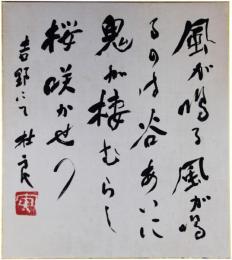 風が鳴る風が鳴
るのは谷あいに
鬼が棲むらし
桜咲かせつ
吉野にて